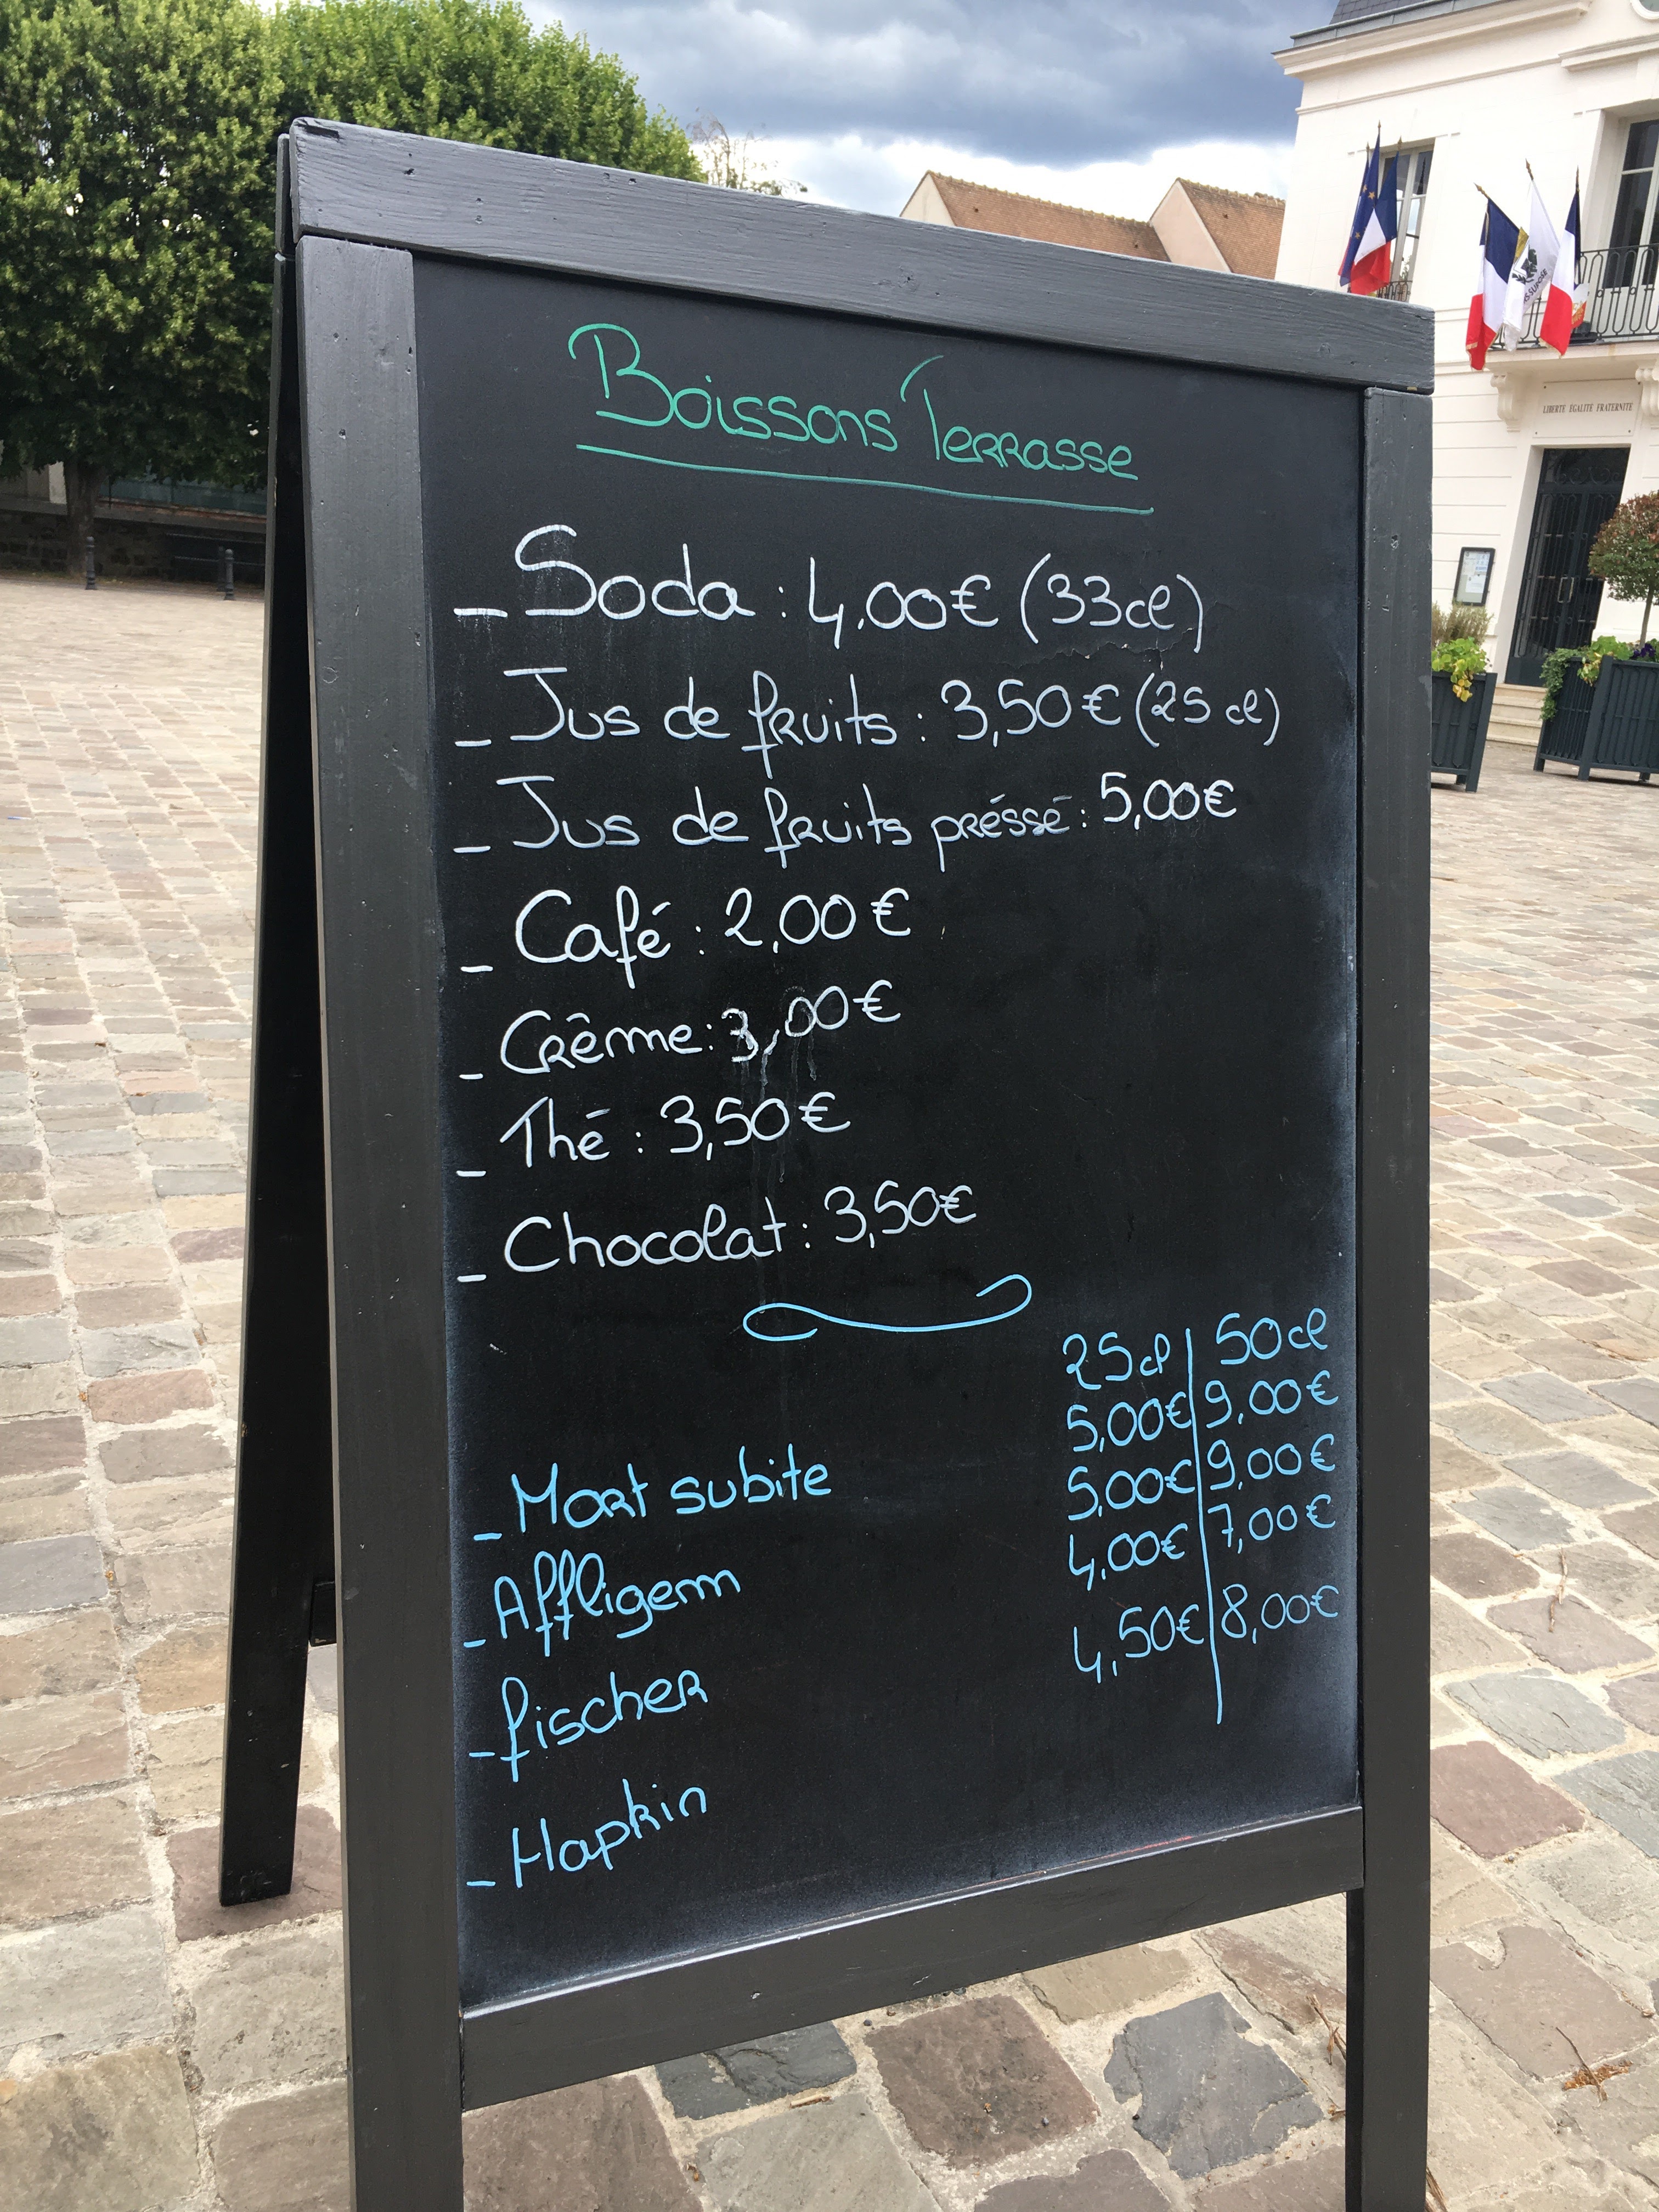 Boissons Terrasse
- Soda : 4,00€ (33cl)
- Jus de fruits : 3,50€ (25 cl)
- Jus de fruits préssé : 5,00€
- Café : 2,00€
- Crême : 3,00€
- Thé : 3,50€
- Chocolat : 3,50€
25cl | 50cl
- Mort subite 5,00€ | 9,00€
- Affligem 5,00€ | 9,00€
- fischer 4,00€ | 7,00€
- Hapkin 4,50€ | 8,00€
LIBERTE EGALITE FRATERNITE